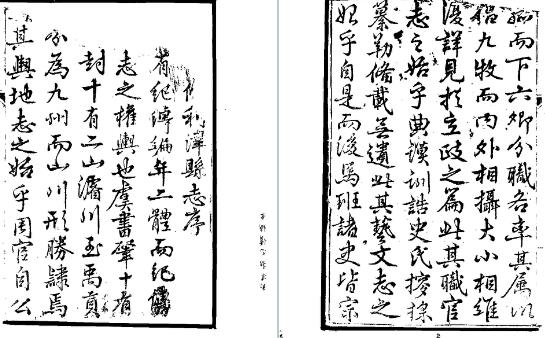 利津縣志序
紀傳編年二體而紀
志之權輿也虞書肇十有
封十有二山濬川至禹貢
分為九州而山川形勝隸焉
其輿地志之始乎周官自公
孤而下六卿分職各率其属以
倡九牧而内外相攝大小相維
復詳見於立政之篇此其職官
志之始乎典謨訓誥史氏採
纂勒備載無遺此其藝文志之
始乎自是而後馬班諸史皆宗